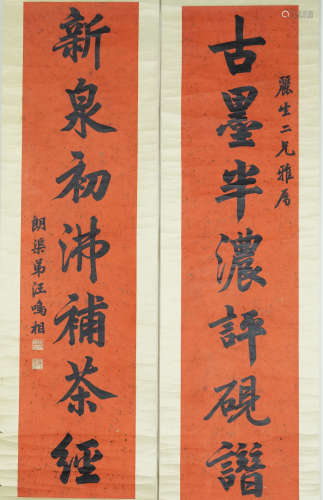 古墨半濃評硯譜
麗生二兄雅属
新泉初沸補茶經
朗渠弟汪鳴相